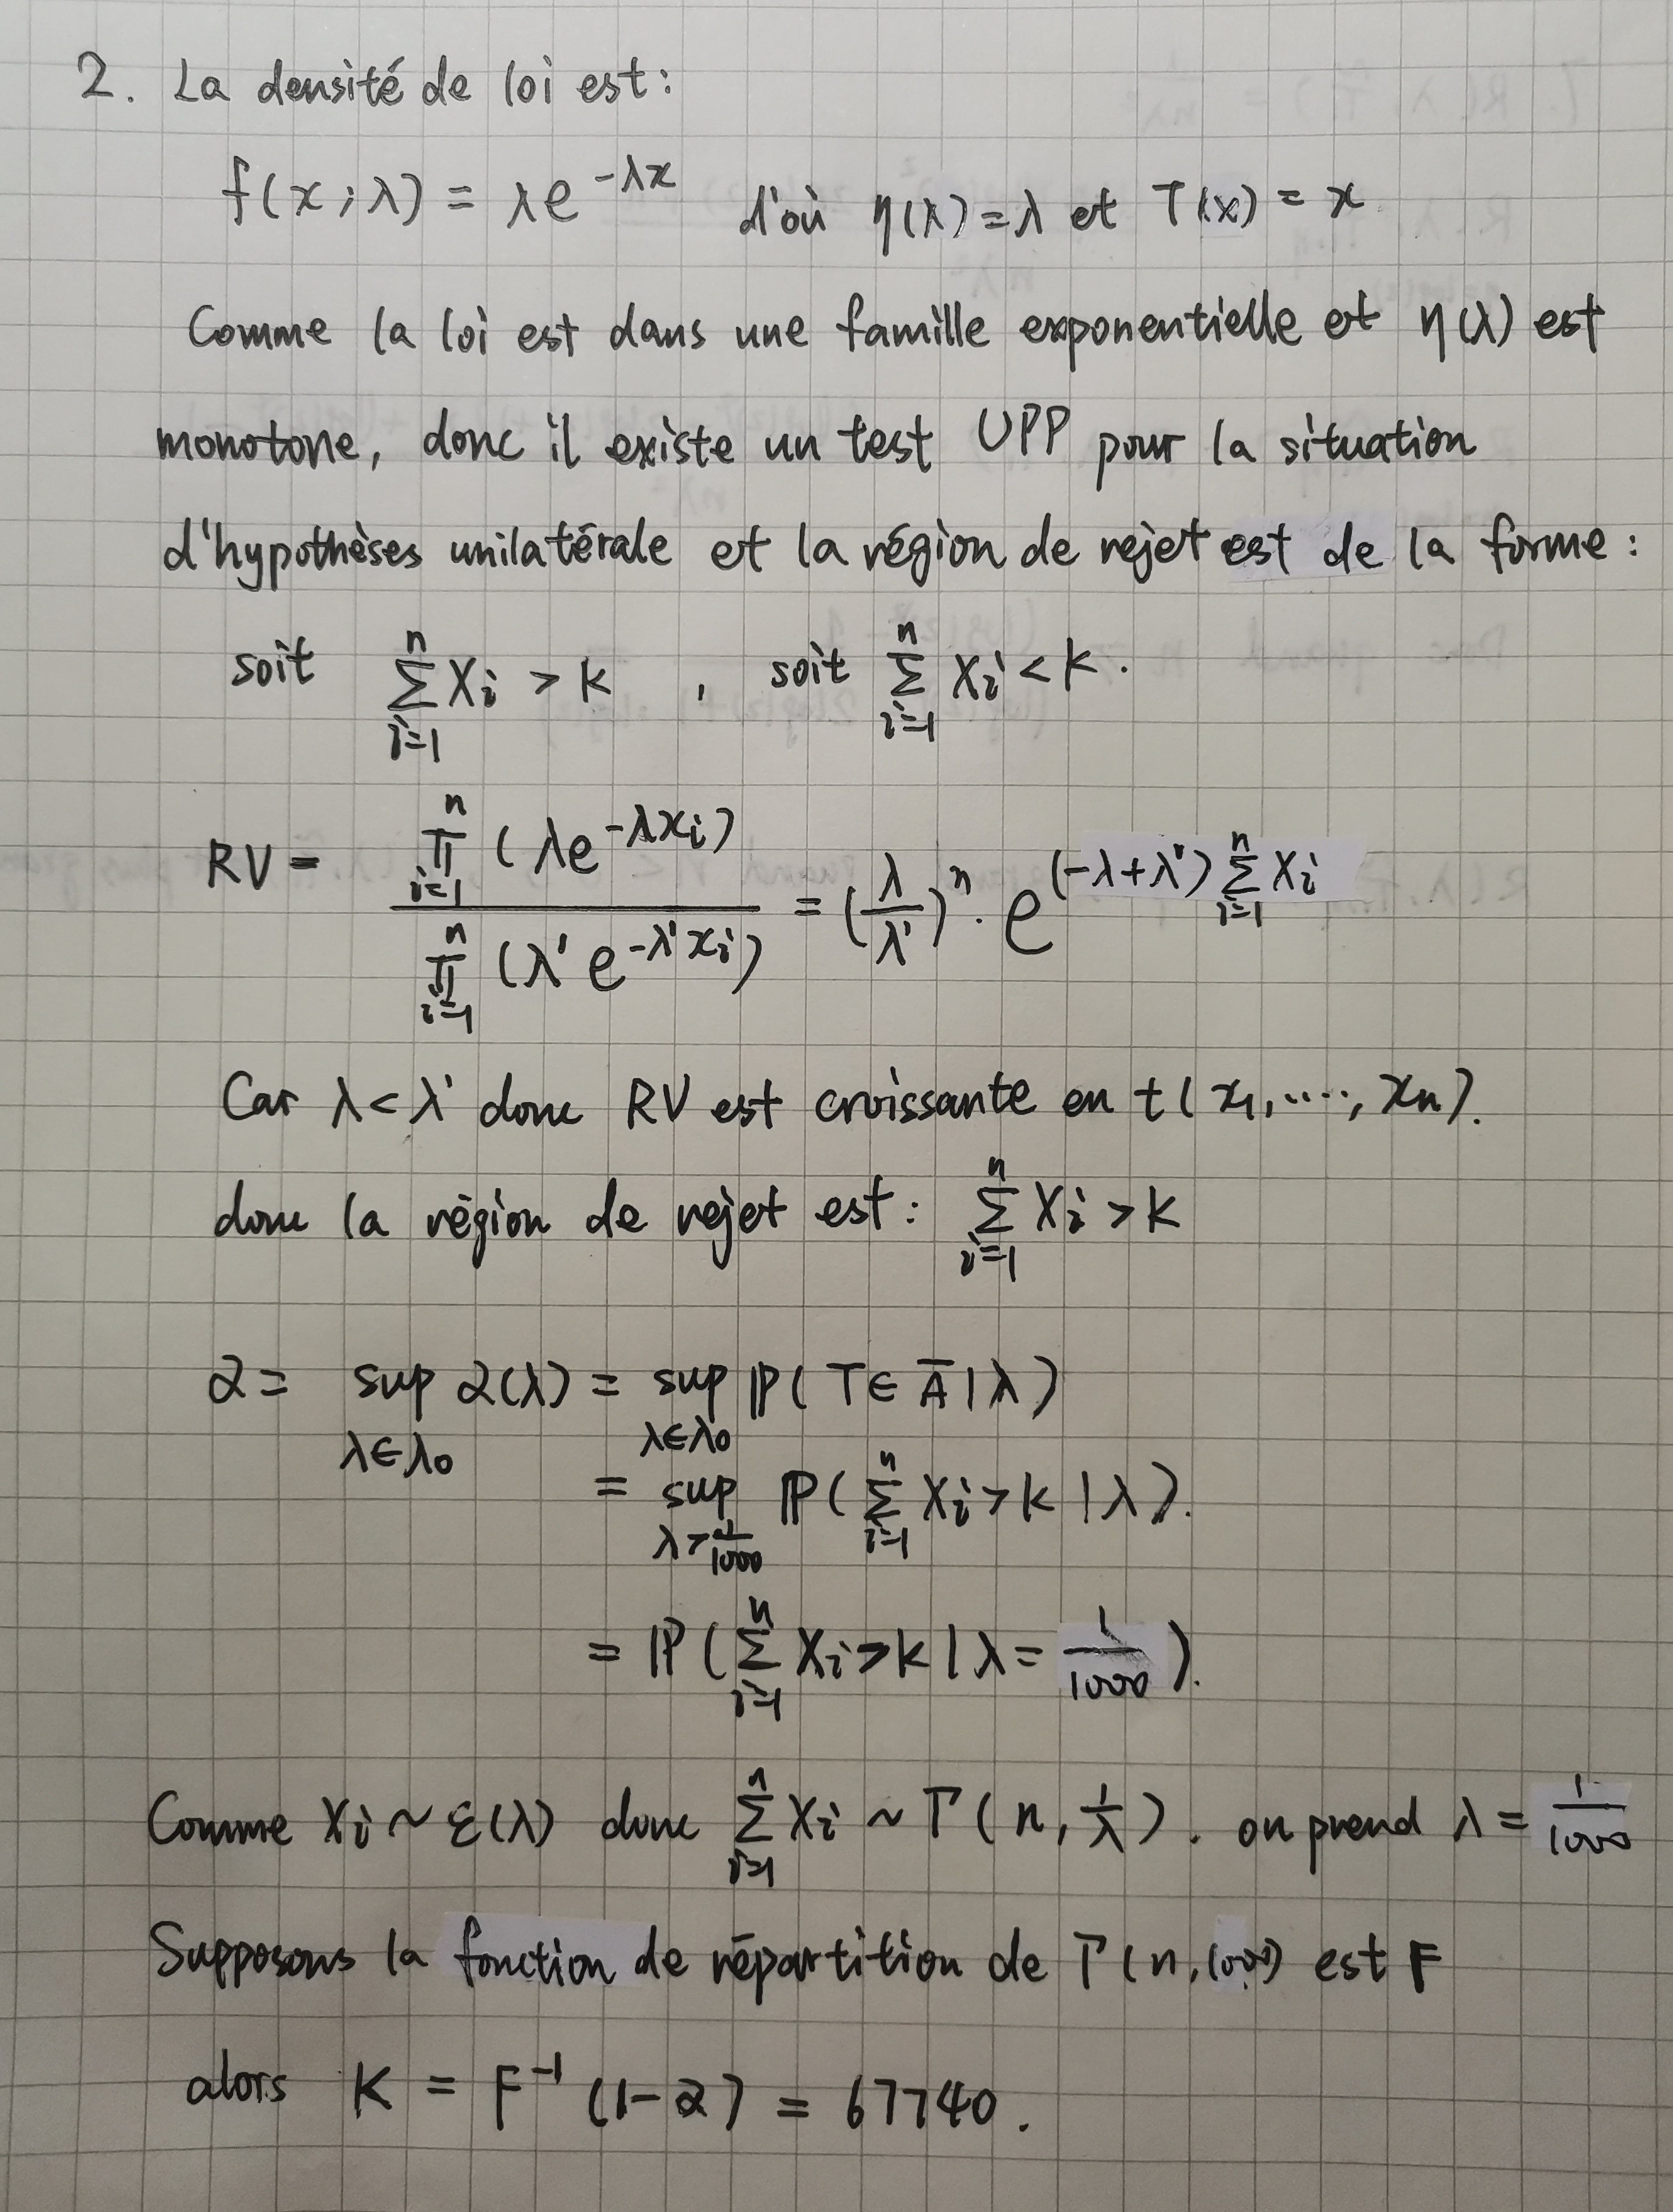 2. La densité de loi est :
f(x;λ) = λe^{-λx} d'où η(λ)=λ et T(x) = x
Comme la loi est dans une famille exponentielle et η(λ) est
monotone, donc il existe un test UPP pour la situation
d'hypothèses unilatérale et la région de rejet est de la forme :
soit \sum_{i=1}^{n} X_i > k , soit \sum_{i=1}^{n} X_i < k .
RV = \frac{\prod_{i=1}^{n} (λe^{-λx_i})}{\prod_{i=1}^{n} (λ'e^{-λ'x_i})} = (\frac{λ}{λ'})^n · e^{(-λ+λ') \sum_{i=1}^{n} X_i}
Car λ<λ' donc RV est croissante en t(x_1,....,x_n).
donc la région de rejet est : \sum_{i=1}^{n} X_i > k
α = \sup_{λ∈λ_0} α(λ) = \sup_{λ∈λ_0} ℙ(T∈\bar{A}|λ)
= \sup_{λ>\frac{1}{1000}} ℙ(\sum_{i=1}^{n} X_i > k | λ).
= ℙ(\sum_{i=1}^{n} X_i > k | λ = \frac{1}{1000}).
Comme X_i ~ ε(λ) donc \sum_{i=1}^{n} X_i ~ Γ(n, \frac{1}{λ}). on prend λ = \frac{1}{1000}
Supposons la fonction de répartition de Γ(n,1000) est F
alors K = F^{-1}(1-α) = 67740.